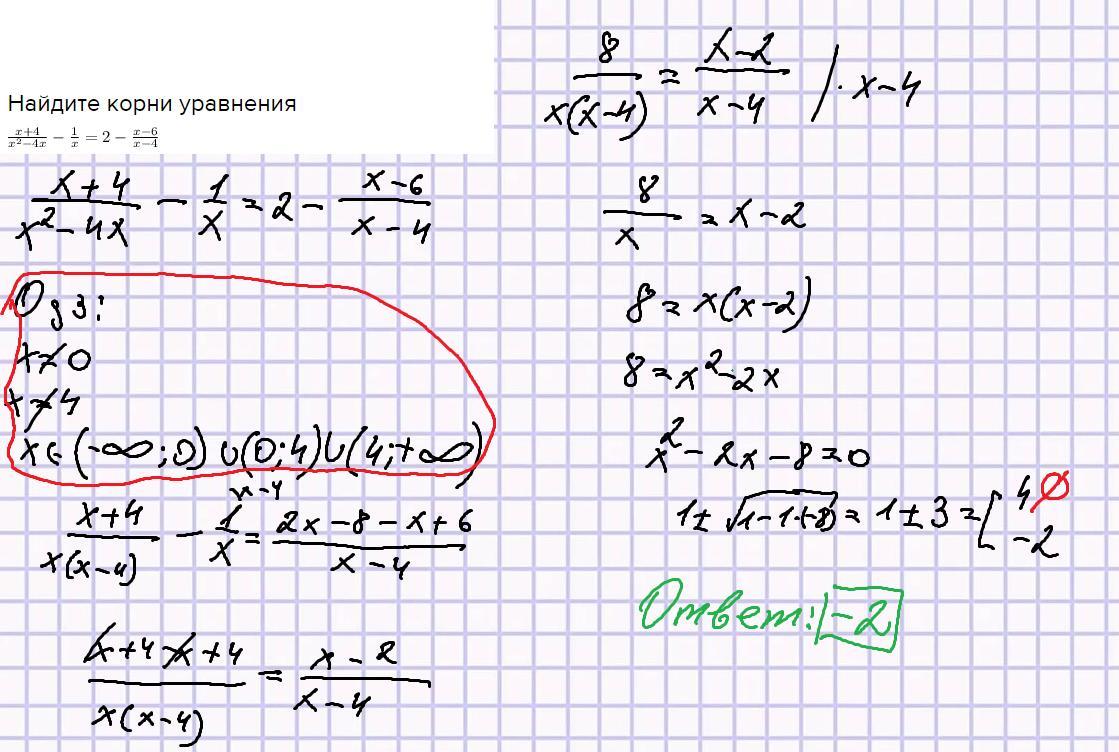 Найдите корни уравнения
\frac{x+4}{x^2-4x} - \frac{1}{x} = 2 - \frac{x-6}{x-4}
\frac{x+4}{x^2-4x} - \frac{1}{x} = 2 - \frac{x-6}{x-4}
Одз:
x≠0
x≠4
x∈(-∞;0)∪(0;4)∪(4;+∞)
x-4
\frac{x+4}{x(x-4)} - \frac{1}{x} = \frac{2x-8-x+6}{x-4}
\frac{x+4-x+4}{x(x-4)} = \frac{x-2}{x-4}
\frac{8}{x(x-4)} = \frac{x-2}{x-4} / · x-4
\frac{8}{x} = x-2
8=x(x-2)
8=x^2-2x
x^2-2x-8=0
1±\sqrt{1-1·(-8)} = 1±3 = [ 4 ∅
-2
Ответ: -2